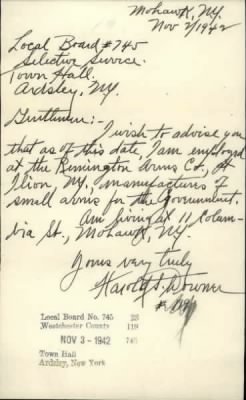 Mohawk, N.Y.
Nov 2/1942
Local Board #745
Selective Service.
Town Hall.
Ardsley, N.Y.
Gentlemen:-
I wish to advise you
that as of this date I am employed
at the Remington Arms Co., At
Ilion, N.Y., manufactures of
small arms for the Government.
Am living at 11 Colum-
bia St., Mohawk, N.Y.
Yours very truly
Harold S. Downer
Local Board No. 745 23
Westchester County 119
NOV 3 - 1942 745
Town Hall
Ardsley, New York